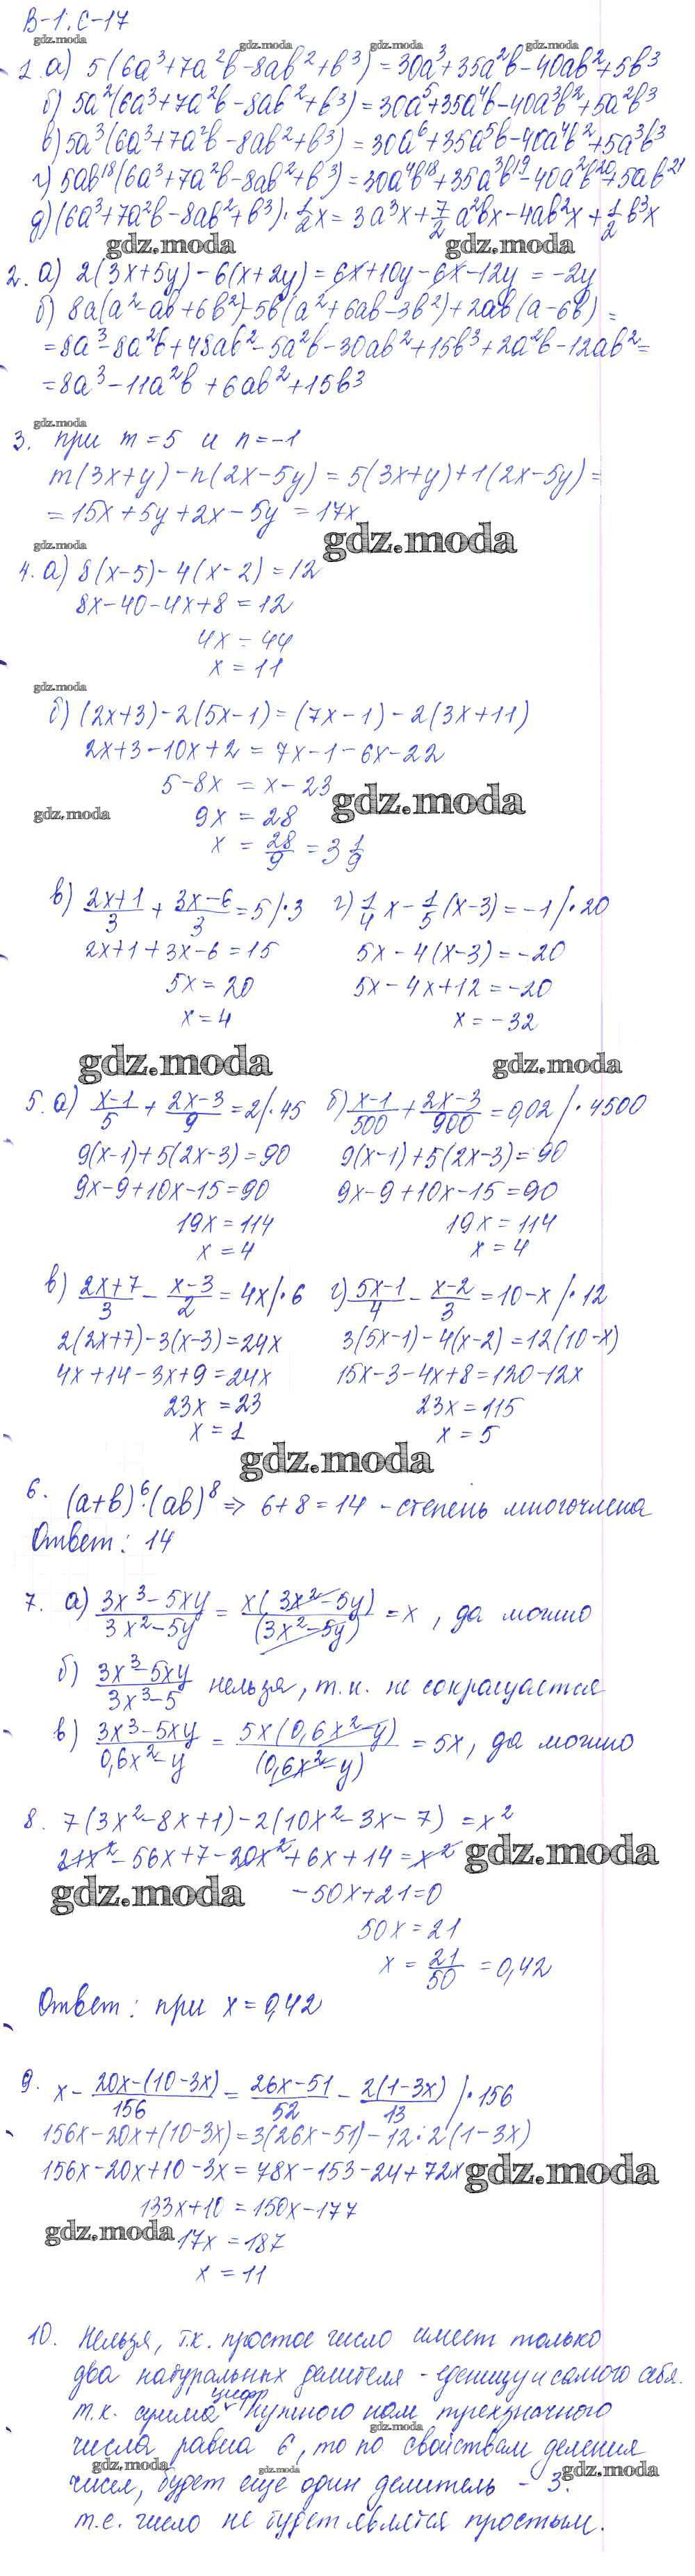 В-1. С-17
gdz.moda
gdz.moda gdz.moda gdz.moda
1. а) 5(6a³+7a²b-8ab²+b³)=30a³+35a²b-40ab²+5b³
б) 5a²(6a³+7a²b-8ab²+b³)=30a⁵+35a⁴b-40a³b²+5a²b³
в) 5a³(6a³+7a²b-8ab²+b³)=30a⁶+35a⁵b-40a⁴b²+5a³b³
г) 5ab¹⁸(6a³+7a²b-8ab²+b³)=30a⁴b¹⁸+35a³b¹⁹-40a²b²⁰+5ab²¹
д) (6a³+7a²b-8ab²+b³)·1/2x=3a³x+7/2a²bx-4ab²x+1/2b³x
gdz.moda gdz.moda
2. а) 2(3x+5y)-6(x+2y)=6x+10y-6x-12y=-2y
б) 8a(a²-ab+6b²)-5b(a²+6ab-3b²)+2ab(a-6b)=
=8a³-8a²b+48ab²-5a²b-30ab²+15b³+2a²b-12ab²=
=8a³-11a²b+6ab²+15b³
gdz.moda
3. при m=5 и n=-1
m(3x+y)-n(2x-5y)=5(3x+y)+1(2x-5y)=
=15x+5y+2x-5y=17x
gdz.moda
gdz.moda
4. а) 8(x-5)-4(x-2)=12
8x-40-4x+8=12
4x=44
x=11
gdz.moda
б) (2x+3)-2(5x-1)=(7x-1)-2(3x+11)
2x+3-10x+2=7x-1-6x-22
5-8x=x-23
gdz.moda
gdz.moda
9x=28
x=28/9=3 1/9
в) (2x+1)/3+(3x-6)/3=5/·3 г) 1/4x-1/5(x-3)=-1/·20
2x+1+3x-6=15 5x-4(x-3)=-20
5x=20 5x-4x+12=-20
x=4 x=-32
gdz.moda gdz.moda
5. а) (x-1)/5+(2x-3)/9=2/·45 б) (x-1)/500+(2x-3)/900=0,02/·4500
9(x-1)+5(2x-3)=90 9(x-1)+5(2x-3)=90
9x-9+10x-15=90 9x-9+10x-15=90
19x=114 19x=114
x=4 x=4
в) (2x+7)/3-(x-3)/2=4x/·6 г) (5x-1)/4-(x-2)/3=10-x/·12
2(2x+7)-3(x-3)=24x 3(5x-1)-4(x-2)=12(10-x)
4x+14-3x+9=24x 15x-3-4x+8=120-12x
23x=23 23x=115
x=1 x=5
gdz.moda
6. (a+b)⁶·(ab)⁸ => 6+8=14 - степень многочлена
Ответ: 14
7. а) (3x³-5xy)/(3x²-5y)=x(3x²-5y)/(3x²-5y)=x, да можно
б) (3x³-5xy)/(3x³-5) нельзя, т.к. не сокращается
в) (3x³-5xy)/(0,6x²-y)=5x(0,6x²-y)/(0,6x²-y)=5x, да можно
8. 7(3x²-8x+1)-2(10x²-3x-7)=x²
21x²-56x+7-20x²+6x+14=x²
gdz.moda
gdz.moda
-50x+21=0
50x=21
x=21/50=0,42
Ответ: при x=0,42
9. x-(20x-(10-3x))/156=(26x-51)/52-2(1-3x)/13 /·156
156x-20x+(10-3x)=3(26x-51)-12·2(1-3x)
156x-20x+10-3x=78x-153-24+72x
gdz.moda
133x+10=150x-177
gdz.moda
17x=187
x=11
10. Нельзя, т.к. простое число имеет только
два натуральных делителя - еденицу и самого себя.
т.к. сумма цифр нужного нам трехзначного
gdz.moda
числа равна 6, то по свойствам деления
gdz.moda gdz.moda gdz.moda
чисел, будет еще один делитель - 3.
т.е. число не будет является простым.